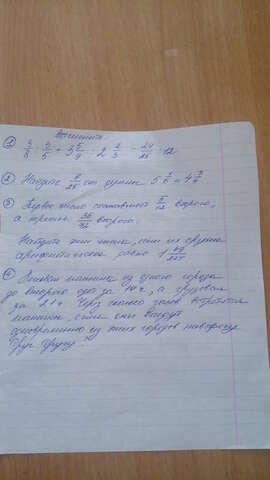 Вычислить
① : 3/5 + 3 5/9 · 2 2/3 - 24/25 : 12
② Найдите /25 от суммы 5 и 4
③ Первое число составляет 5/12 второго,
а третье второго.
Найдите эти числа, если их среднее
арифметическое равно 1
④ Легковая машина из одного города
до второго едет за 14 ч, а грузовая
за 21 ч. Через сколько часов встретятся
машины, если они выедут
одновременно из этих городов навстречу
друг другу?